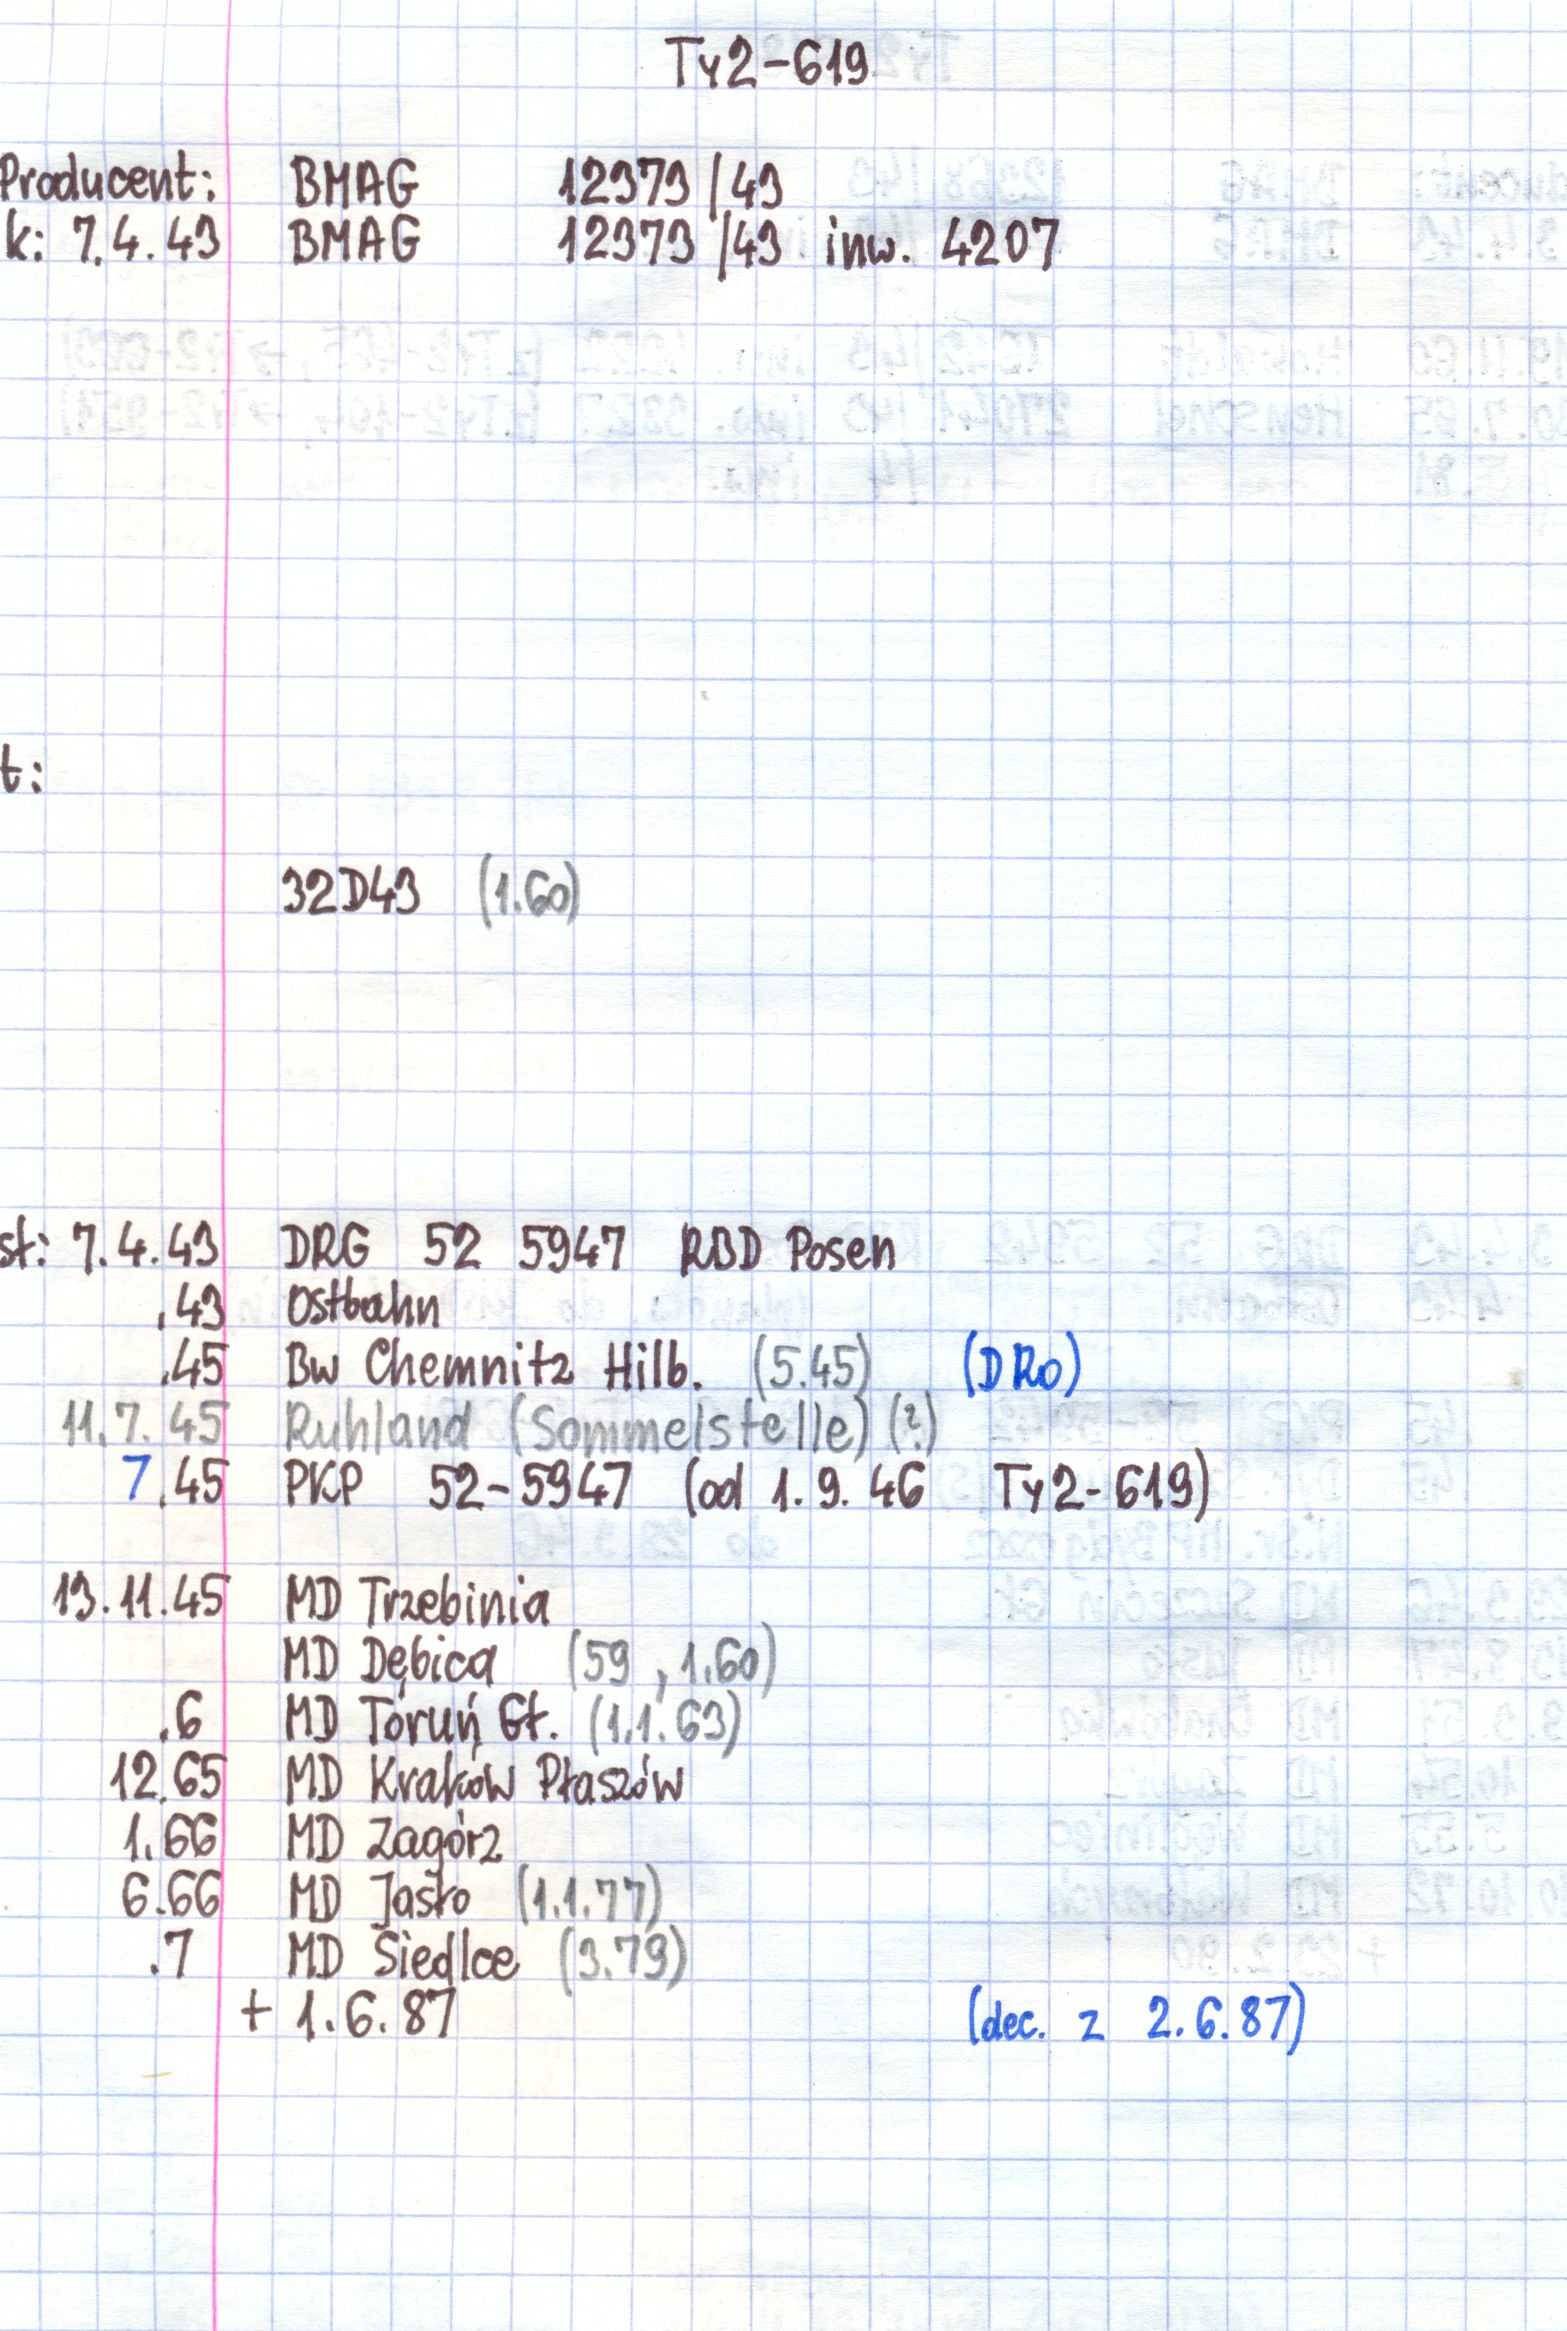 Ty2-619
Producent: BMAG 12373/43
k: 7.4.43 BMAG 12373/43 inw. 4207
t:
32D43 (1.60)
st: 7.4.43 DRG 52 5947 RBD Posen
.43 Ostbahn
.45 Bw Chemnitz Hilb. (5.45) (DRo)
11.7.45 Ruhland (Sommelstelle) (?)
7.45 PKP 52-5947 (od 1.9.46 Ty2-619)
13.11.45 MD Trzebinia
MD Dębica (59, 1.60)
.6 MD Toruń Gł. (1.1.63)
12.65 MD Kraków Płaszów
1.66 MD Zagórz
6.66 MD Jasło (1.1.77)
.7 MD Siedlce (3.79)
+ 1.6.87 (dec. z 2.6.87)